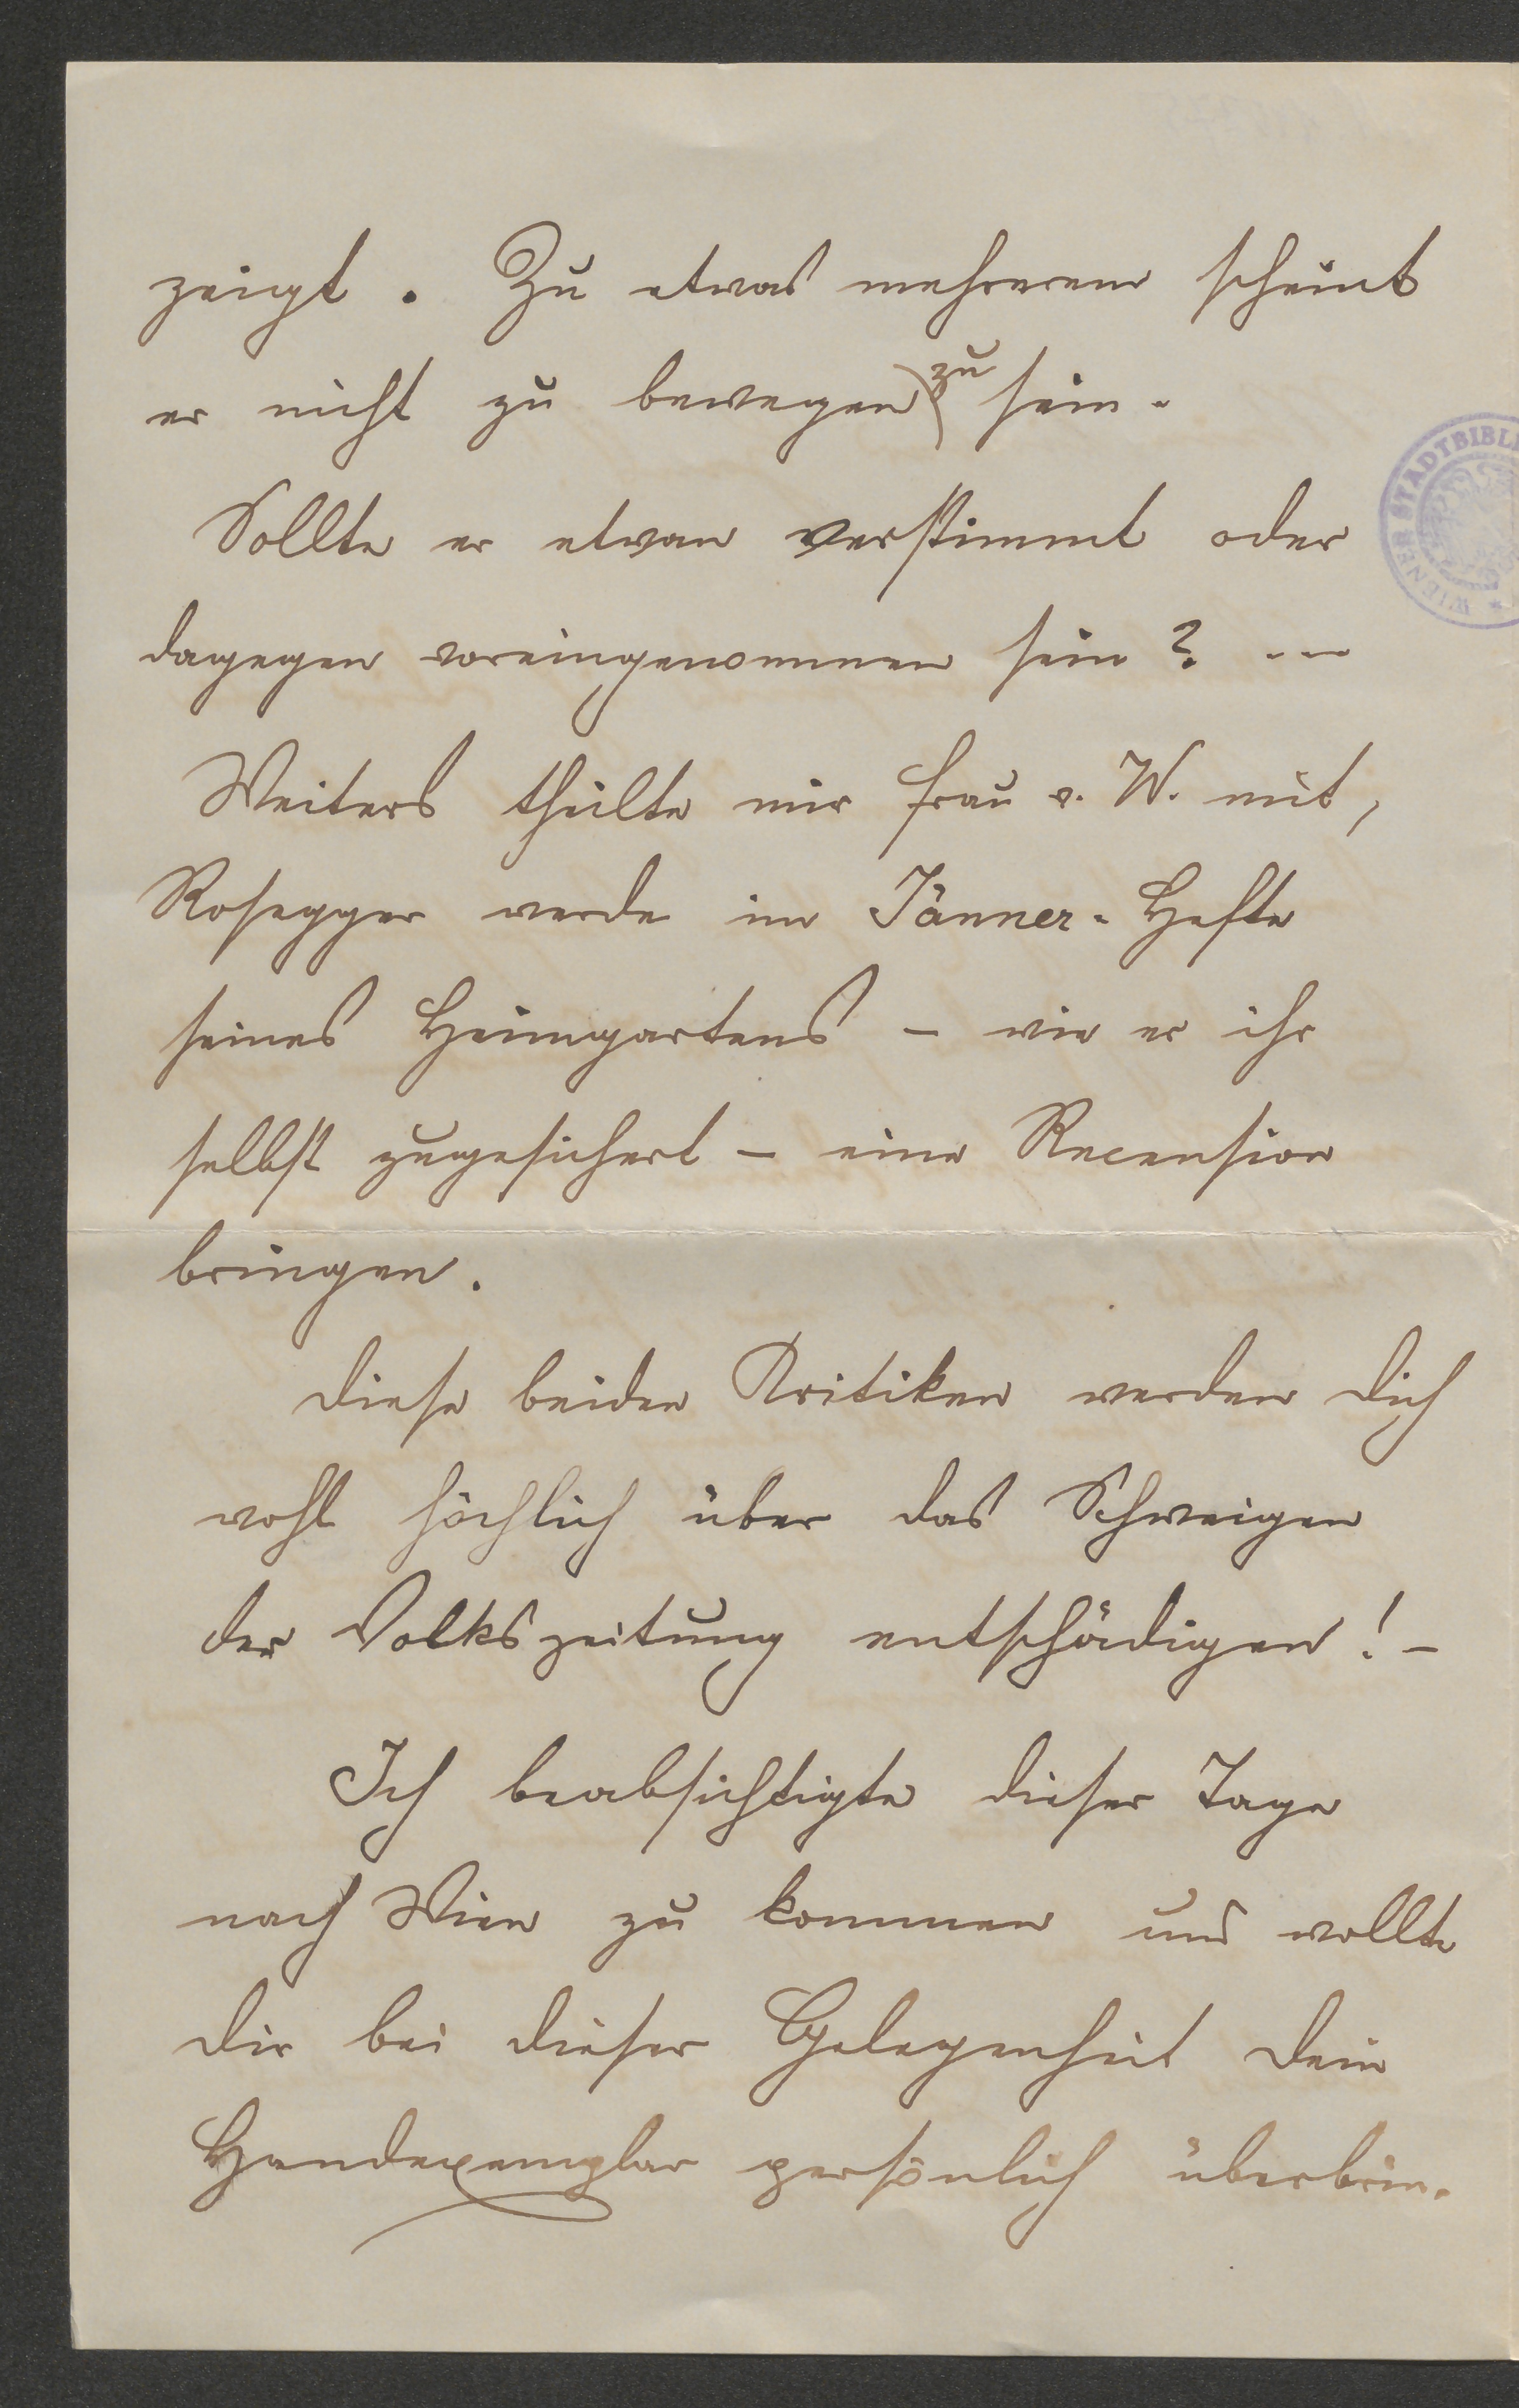 zeigt. Zu etwas mehrerem scheint
er nicht zu bewegen zu sein.
Sollte er etwan verstimmt oder
dagegen voreingenommen sein? ---
Weiters theilte mir Frau v. W. mit,
Rosegger werde im Jänner-Hefte
seines Heimgartens – wie er ihr
selbst zugesichert – eine Recension
bringen.
Diese beiden Kritiken werden Dich
wohl höchlich über das Schweigen
der Volkszeitung entschädigen! –
Ich beabsichtigte dieser Tage
nach Wien zu kommen und wollte
Dir bei dieser Gelegenheit Dein
Handexemplar persönlich überbrin-
WIENER STADTBIBL